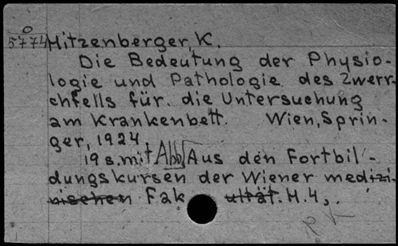 5774 Hitzenberger, K.
Die Bedeutung der Physio-
logie und Pathologie des Zwerr-
chfells für die Untersuchung
am Krankenbett. Wien, Sprin-
ger, 1924
19 s. mit Abb Aus den Fortbil-
dungskursen der Wiener medizi-
nischen Fak ultät. H. 4,.
K